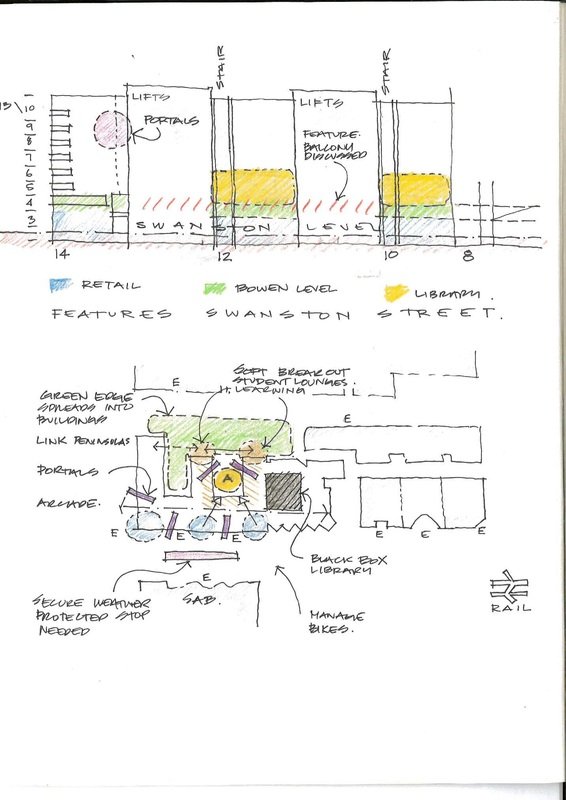 STAIR
STAIR
LIFTS
LIFTS
10
9
8
7
6
5
4
3
PORTALS
FEATURE.
BALCONY
DISCUSSED
SWANSTON LEVEL
14
12
10
8
RETAIL
BOWEN LEVEL
LIBRARY.
FEATURES SWANSTON STREET.
E
SOFT BREAKOUT
STUDENT LOUNGES.
LEARNING
GREEN EDGE
SPREADS INTO
BUILDINGS
LINK PENINSULAS
PORTALS
ARCADE.
E
A
E
E
E
E
E
E
E
BLACK BOX
LIBRARY
E
SAB.
SECURE WEATHER
PROTECTED STOP
NEEDED
MANAGE
BIKES.
RAIL